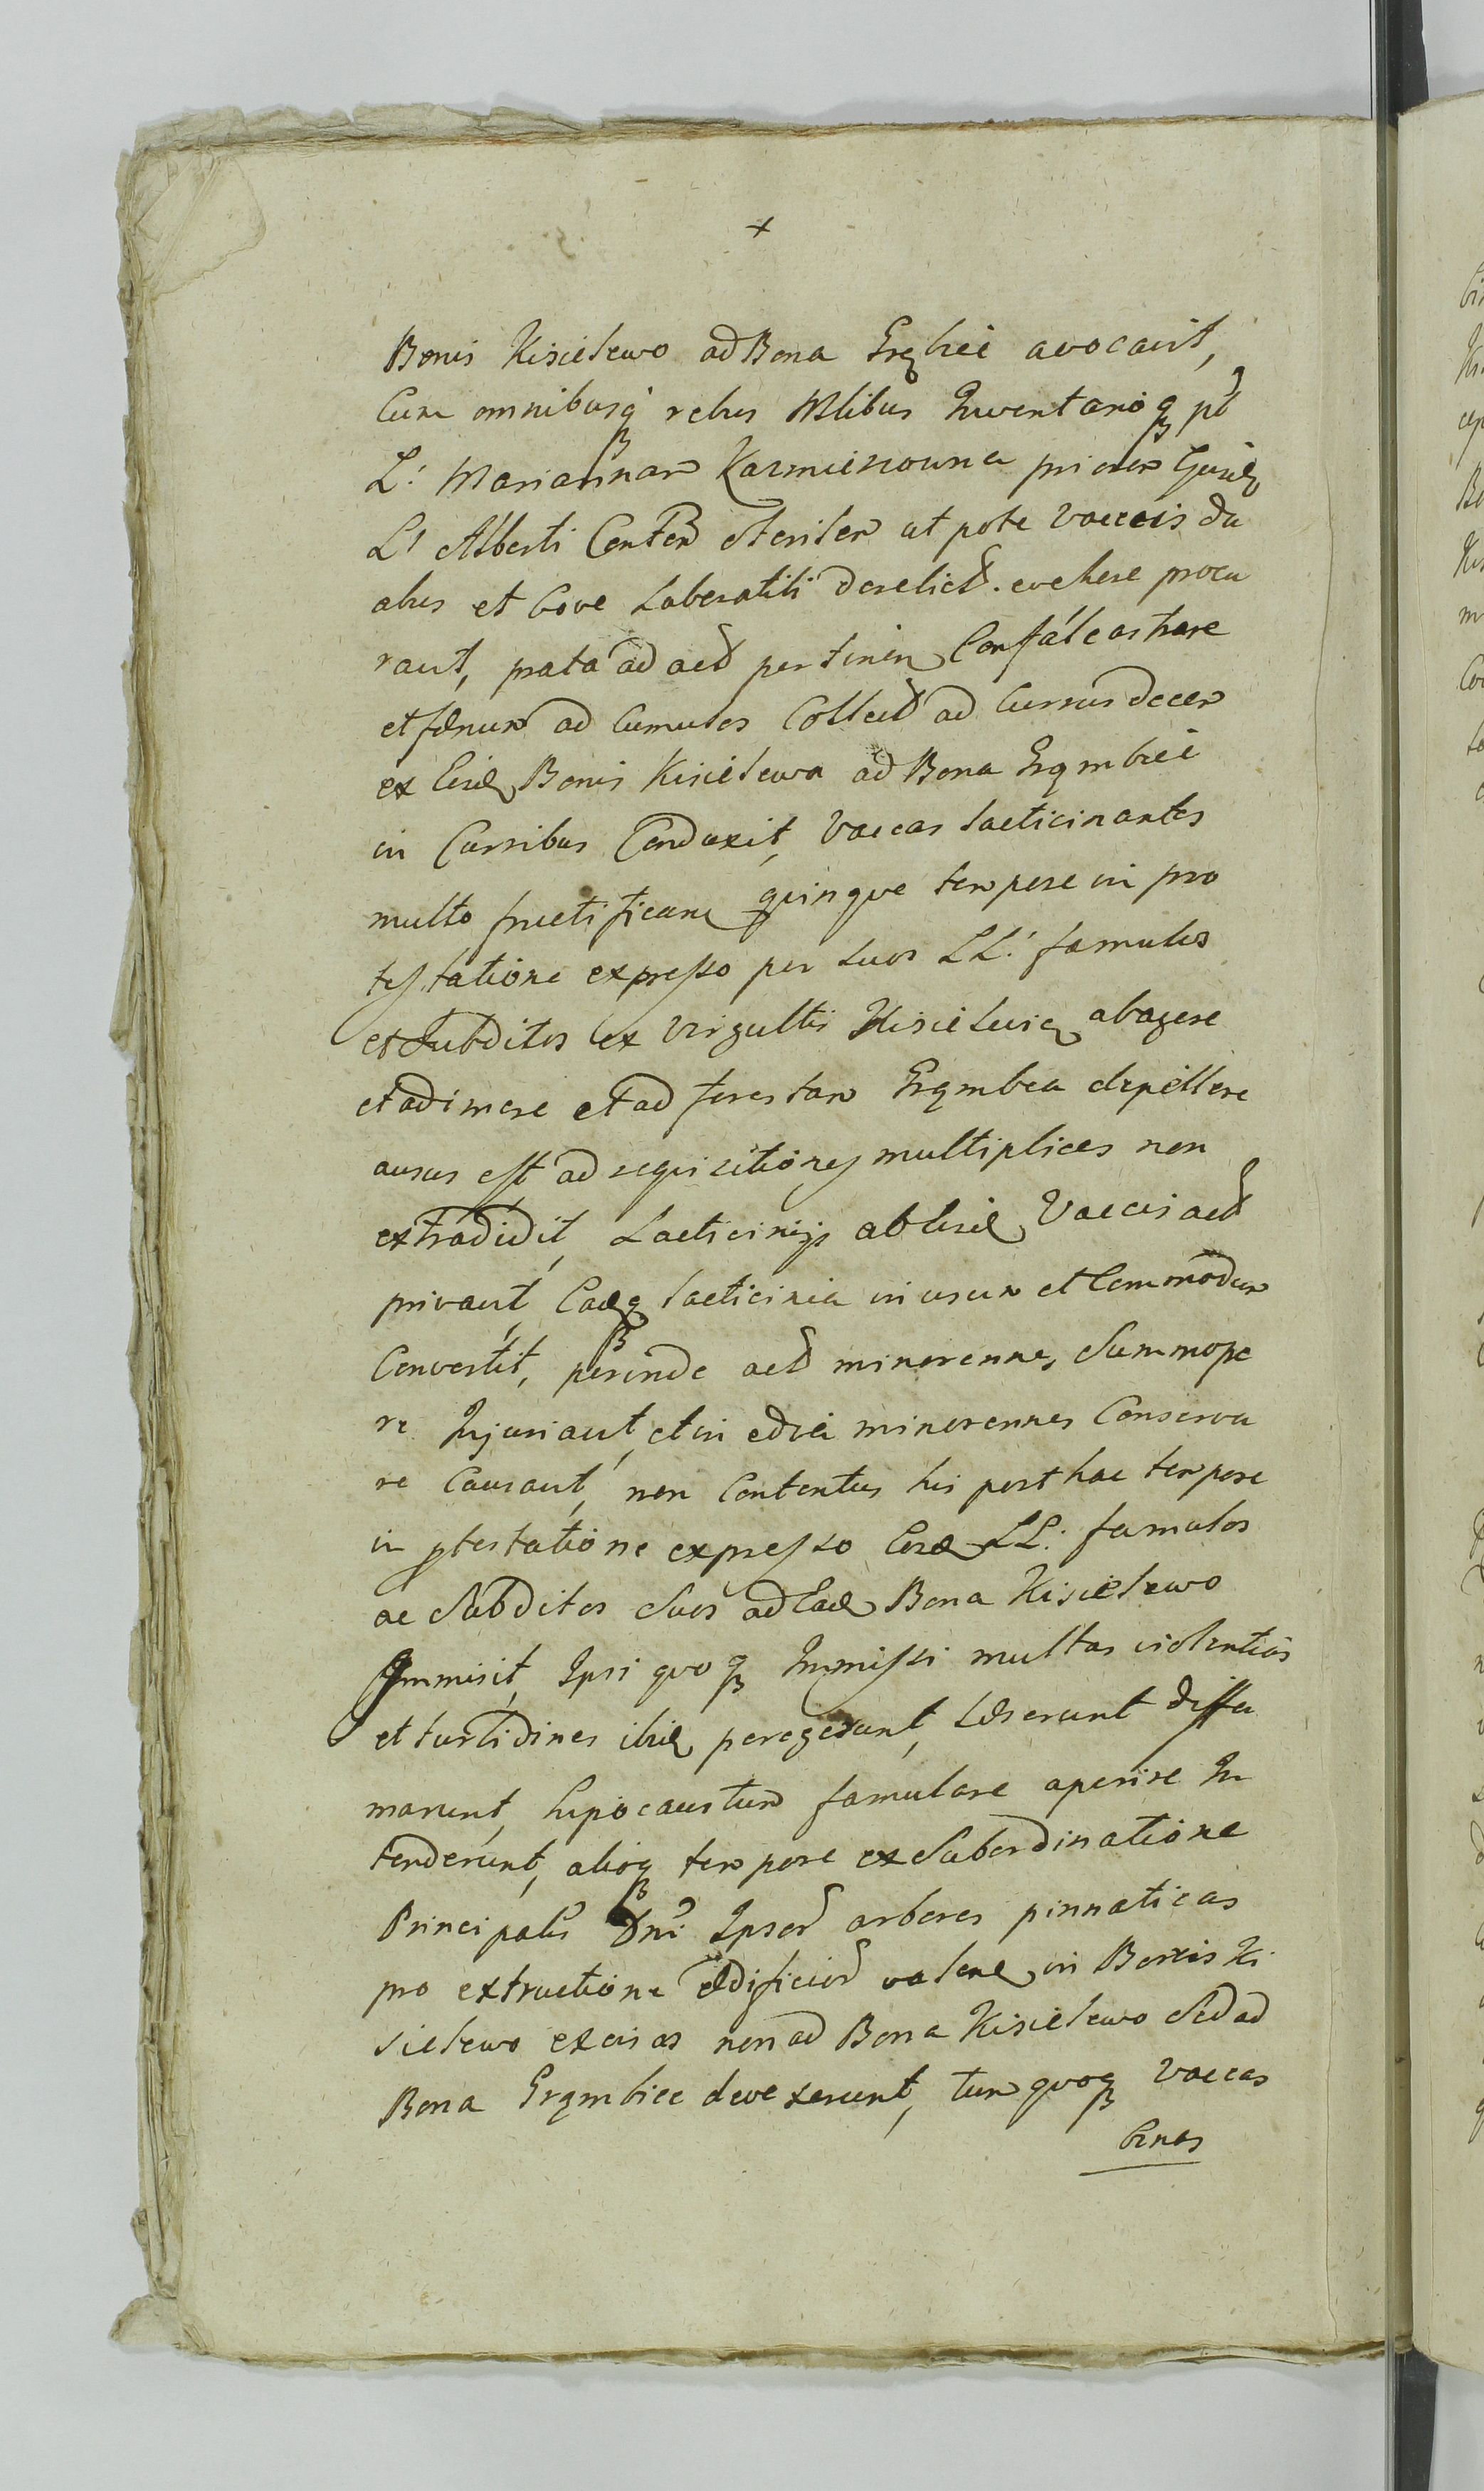 +
Bonis Kisielewo ad Bona Grębie avocavit,
Cum omnibusq rebus Mlibus Inventarioq pt
L: Mariannam Karmieszowna priorem
Lt Alberti Consterilem ut pote vaccis du
abus et bove Laboratili derelict. evehere procu
ravit, prata ad act pertinen Confalcastrare
et fænum ad Cumulos Collect ad Currus decem
ex Eisd Bonis Kisielewa ad Bona Grąmbice
in Curribus Conduxit, Vaccas lacticinantes
multo fructifican quinque tempore in pro
testatione expresso per suos LL: famulos
et Subditos ex virgultis Kisielevien abagere
et adimere et ad forestam Grąmbica depellere
ausus est ad requisitiones multiplices non
extradidit, Lacticinijs ab Eisd Vaccis act
privavit, Eadq lacticinia in usum et Commodum
Convertit, perinde act minorennes Summope
re Injuriavit, et in minorennes Conserva
re Causavit, non Contentus his post hac tempore
in ptestatione expresso Eosd LL: famulos
ac Subditos Suos ad Ead Bona Kisielewo
Immisit, Ipsi quoq Immissi multas violentias
et turtidines ibid peregerunt, Læserunt diffa
marunt, hipocaustum famulare aperire In
tenderunt, alioq tempore ex Subordinatione
Principalis Dni Ipsor arbores pinnaticas
pro extructione Ædificior valen in Bonis Ki
sielewo excisas non ad Bona Kisielewo Sed ad
Bona Grąmbice devexerunt, tum quoq Vaccas
binas